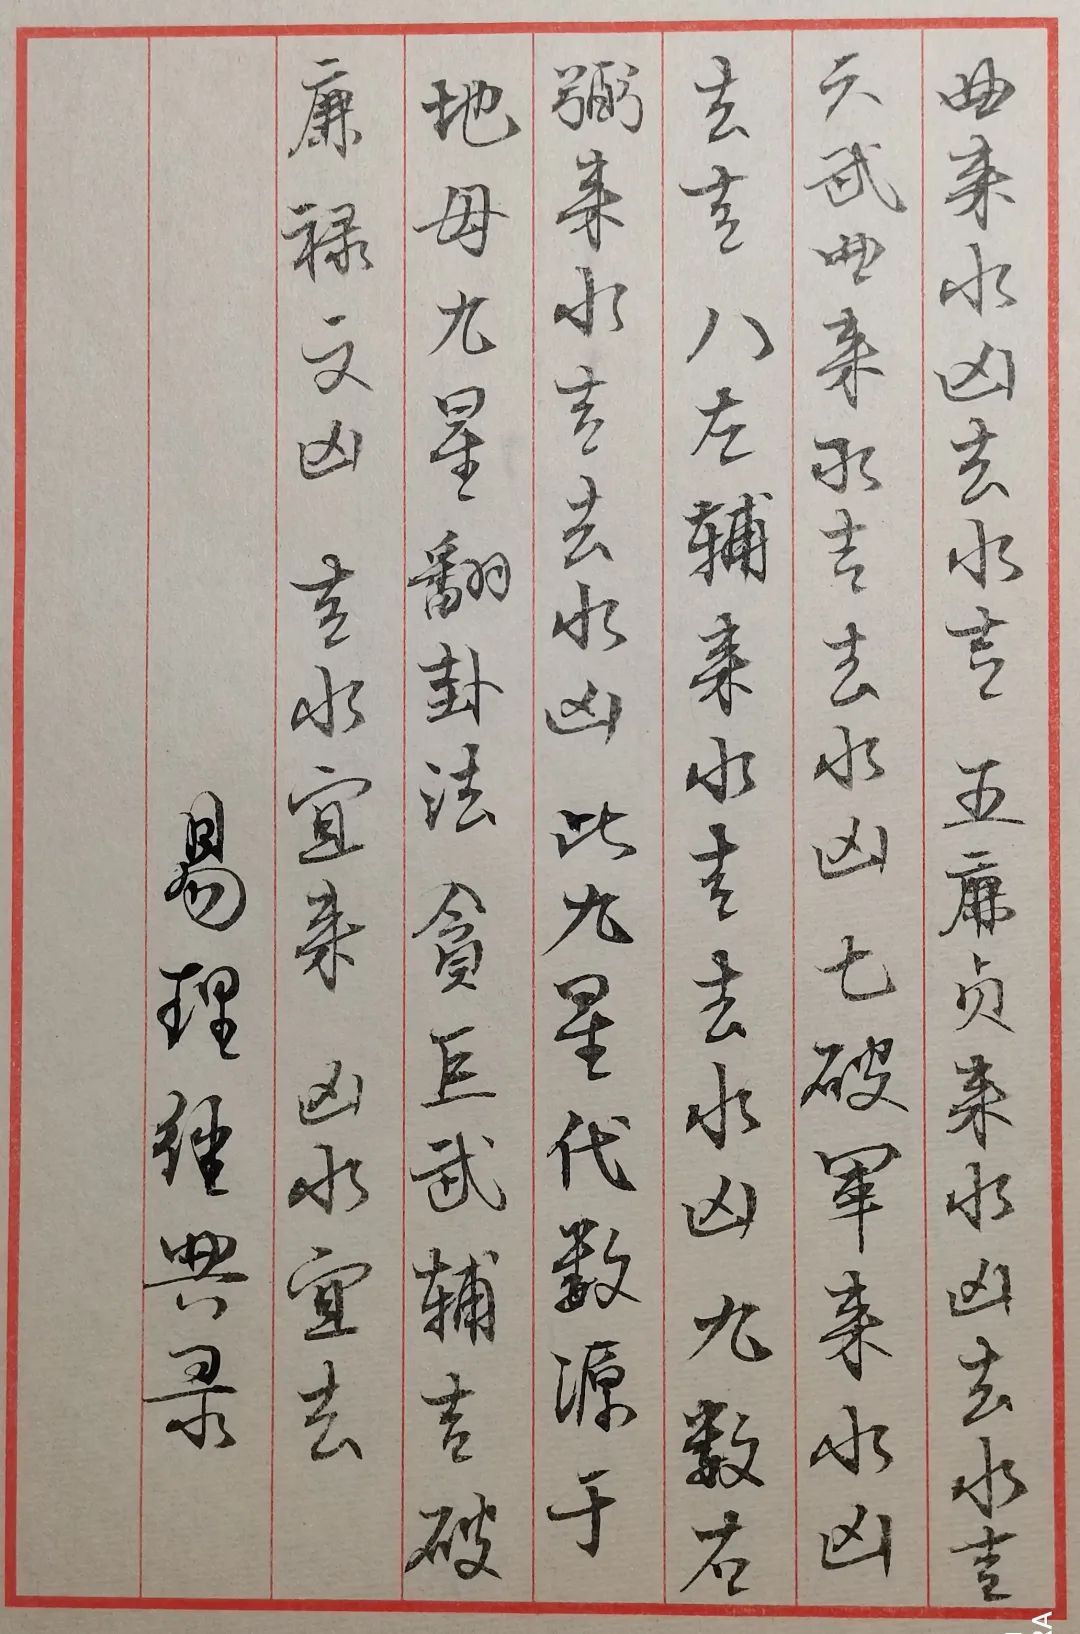 曲来水凶去水吉 五廉贞来水凶去水吉
六武曲来水吉去水凶七破军来水凶
去吉 八左辅来水吉去水凶九数右
弼来水吉去水凶 此九星代数源于
地母九星翻卦法贪巨武辅吉破
廉禄文凶 吉水宜来 凶水宜去
易理经典录